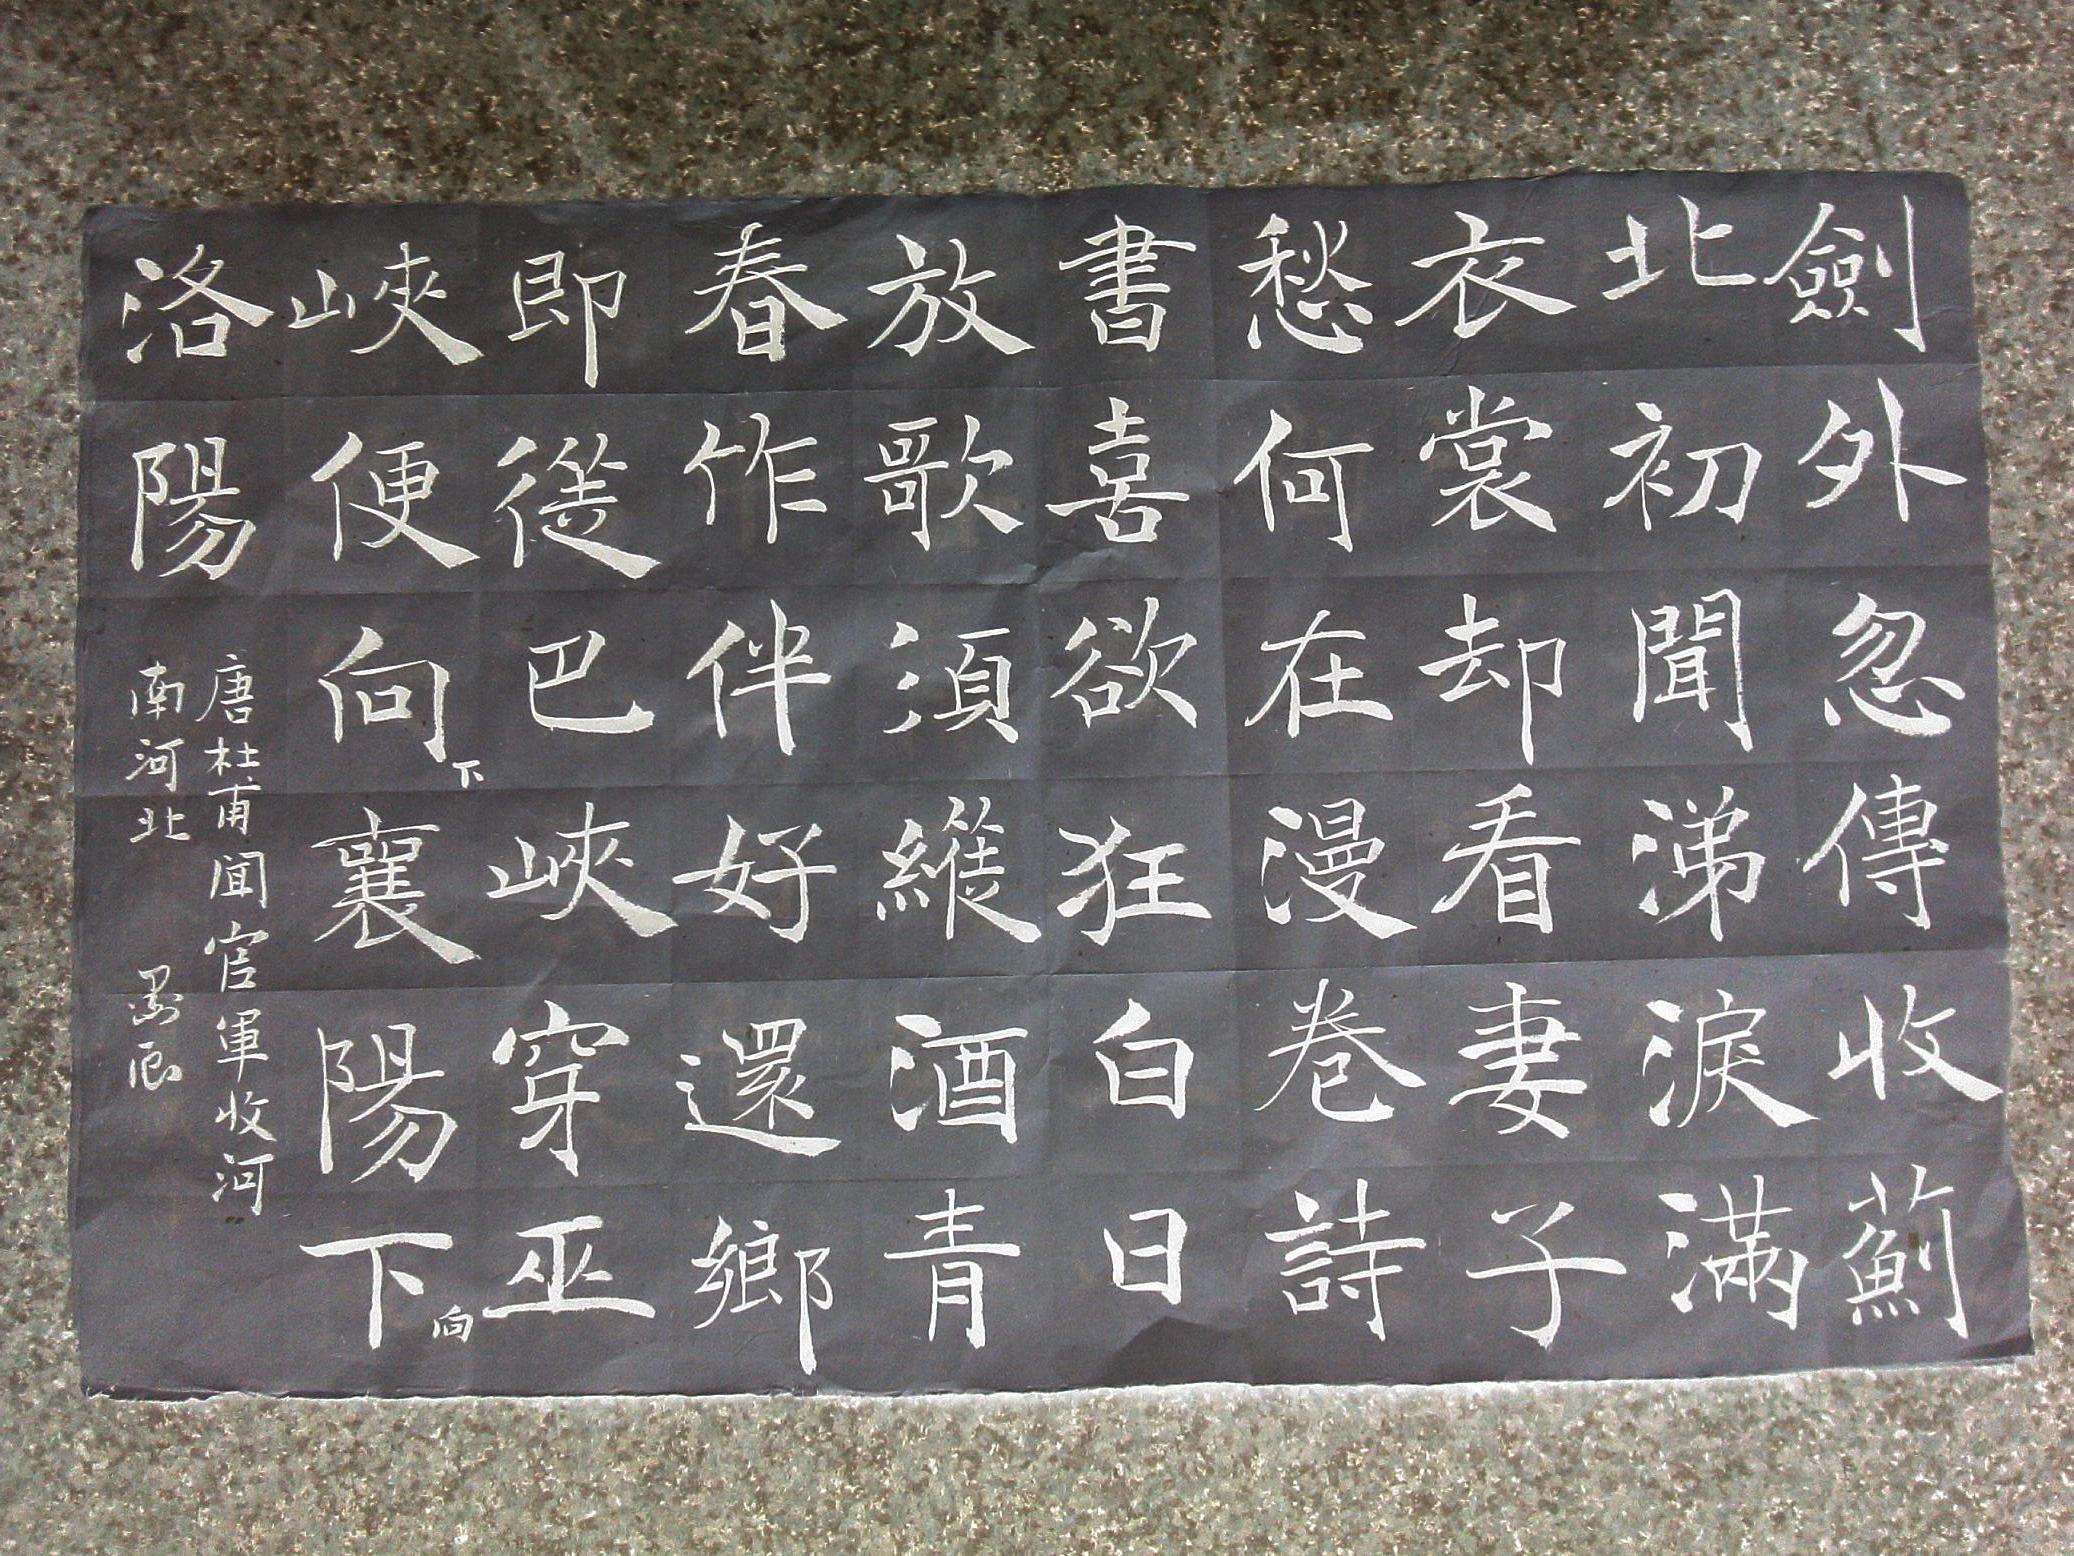 劍外忽傳收薊
北初聞涕淚滿
衣裳却看妻子
愁何在漫卷詩
書喜欲狂白日
放歌須縱酒青
春作伴好還鄉
即從巴峽穿巫
峽便向下襄陽下向
洛陽
唐杜甫聞官軍收河
南河北